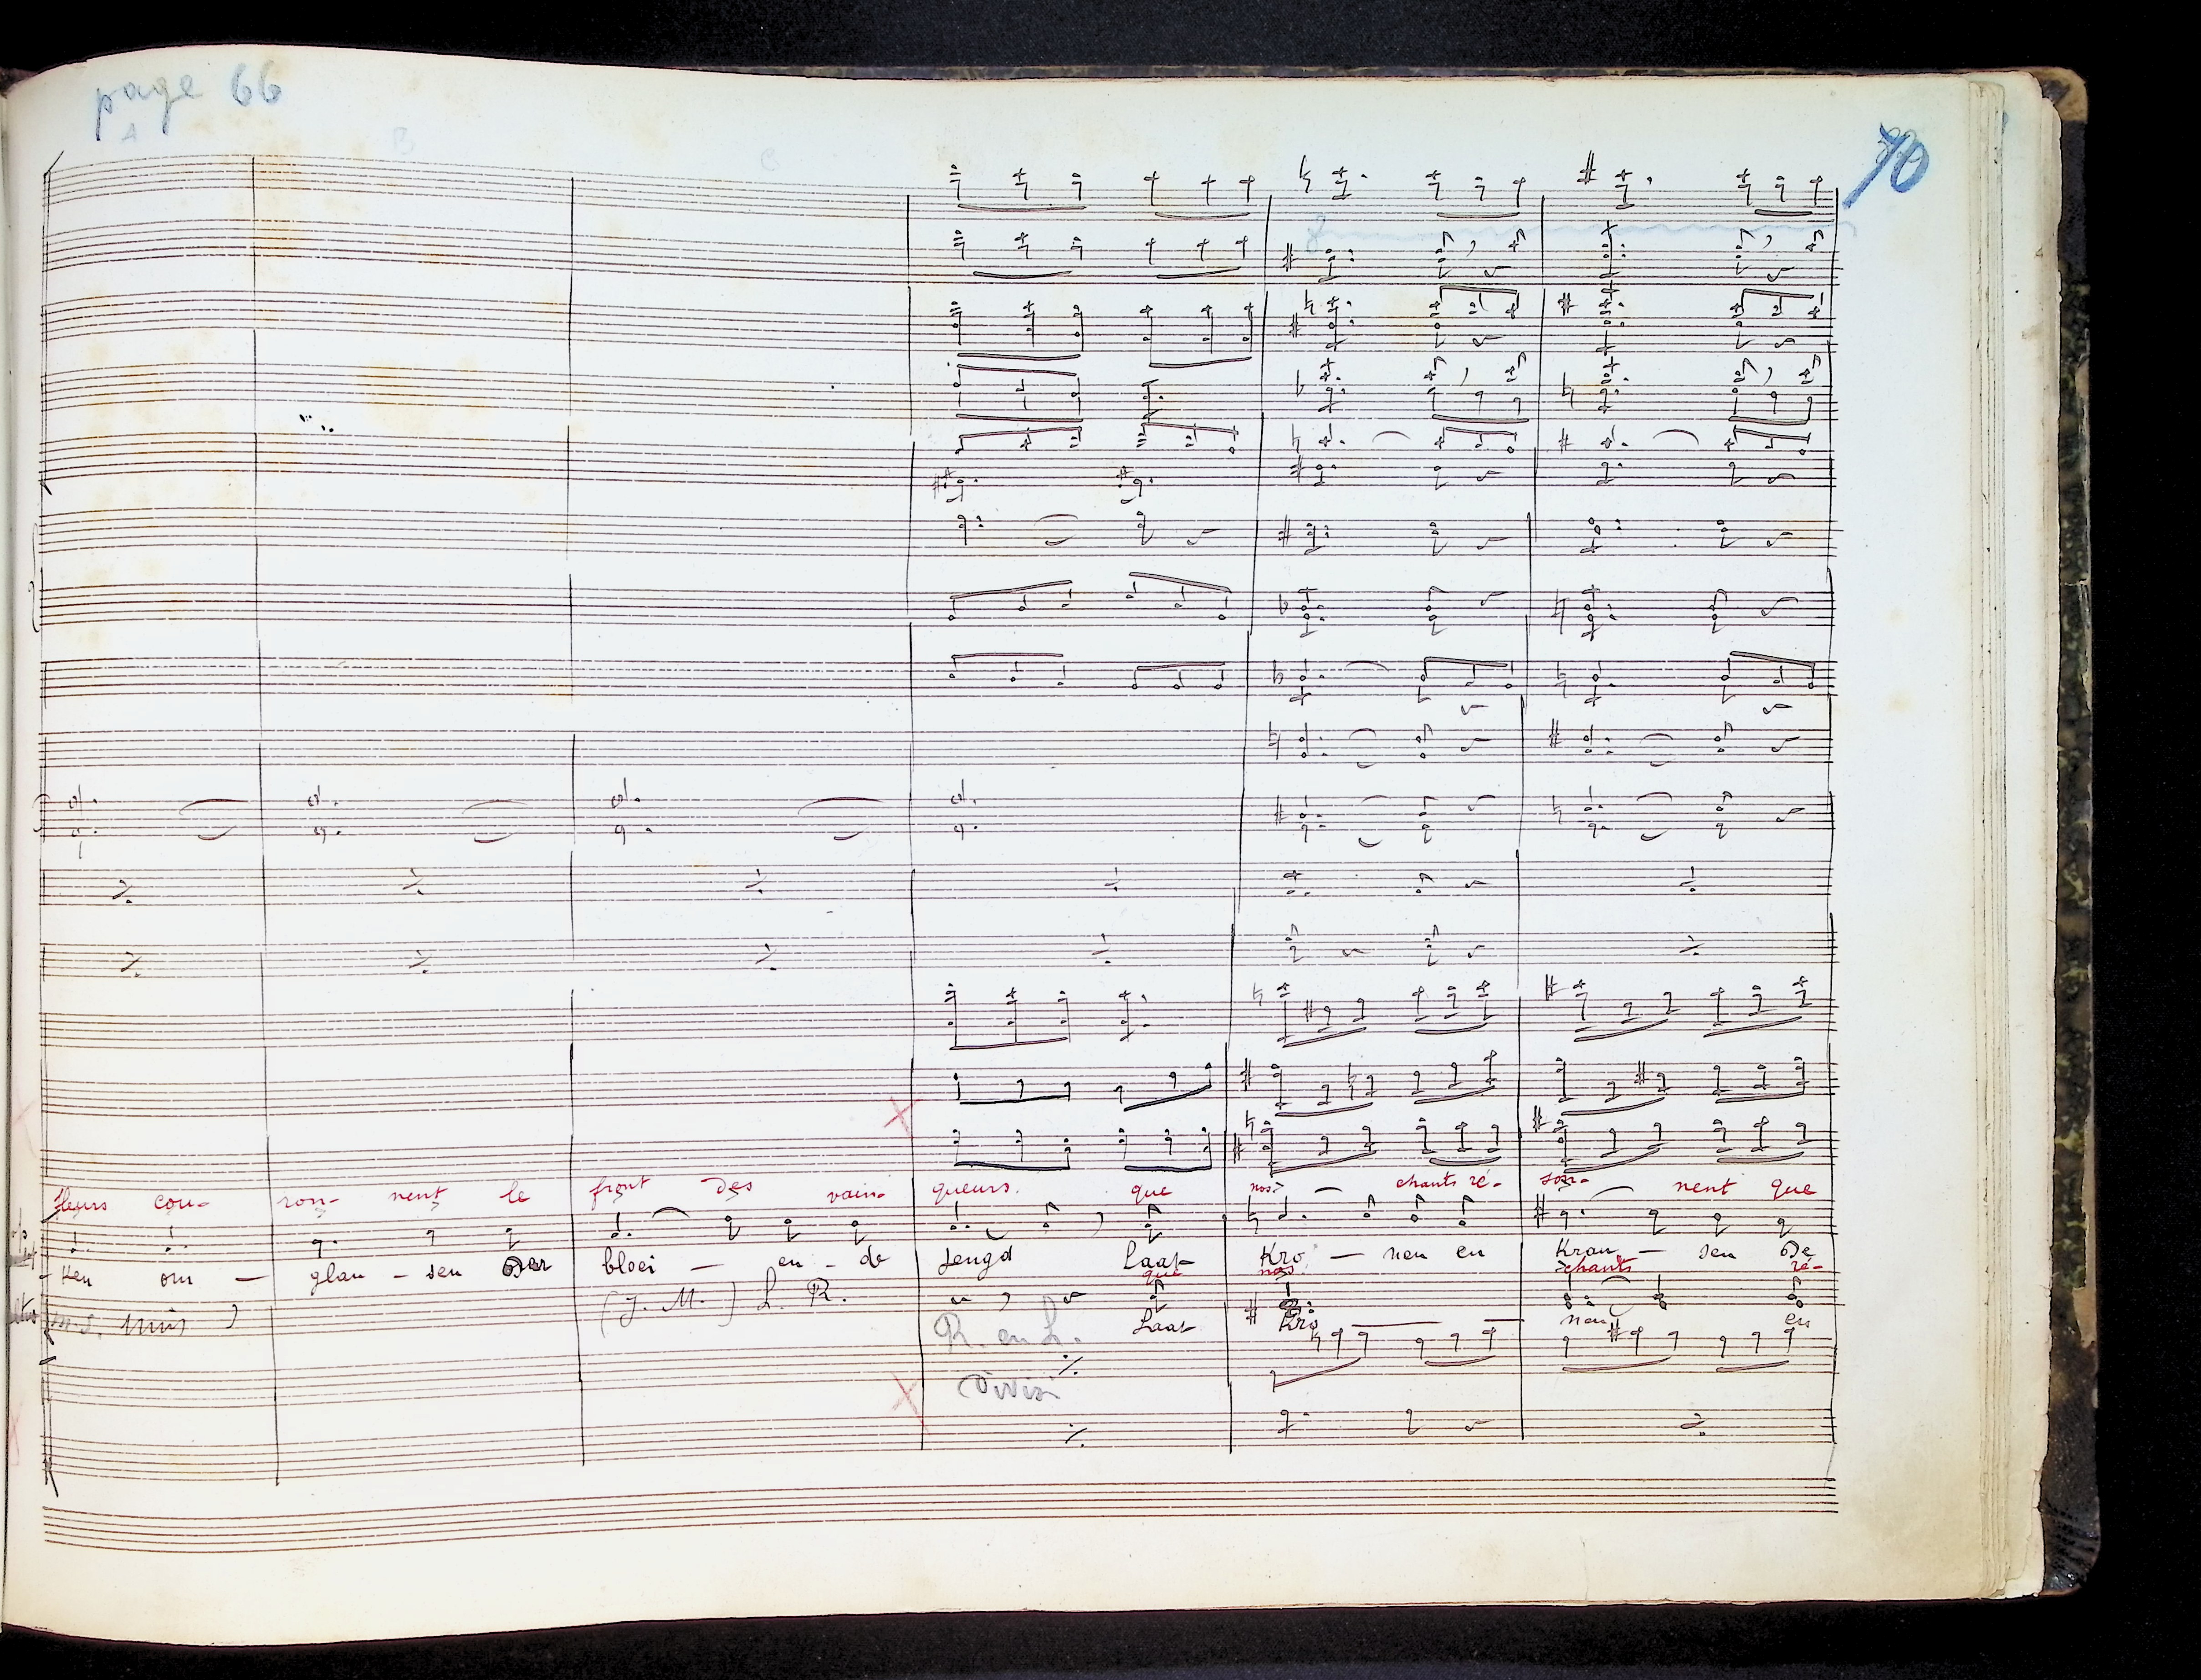 page 66
A B C
70
fleurs cou- ron- nent le front des vain- queurs. que nos- chants ré- son- nent que
ken om - glan - sen Der bloei - en - de Jeugd Laat Kro - nen en Kran - sen De
que nos chants ré-
(J. M.) L. R.
R. en L. Laat Kro nen en
divisi